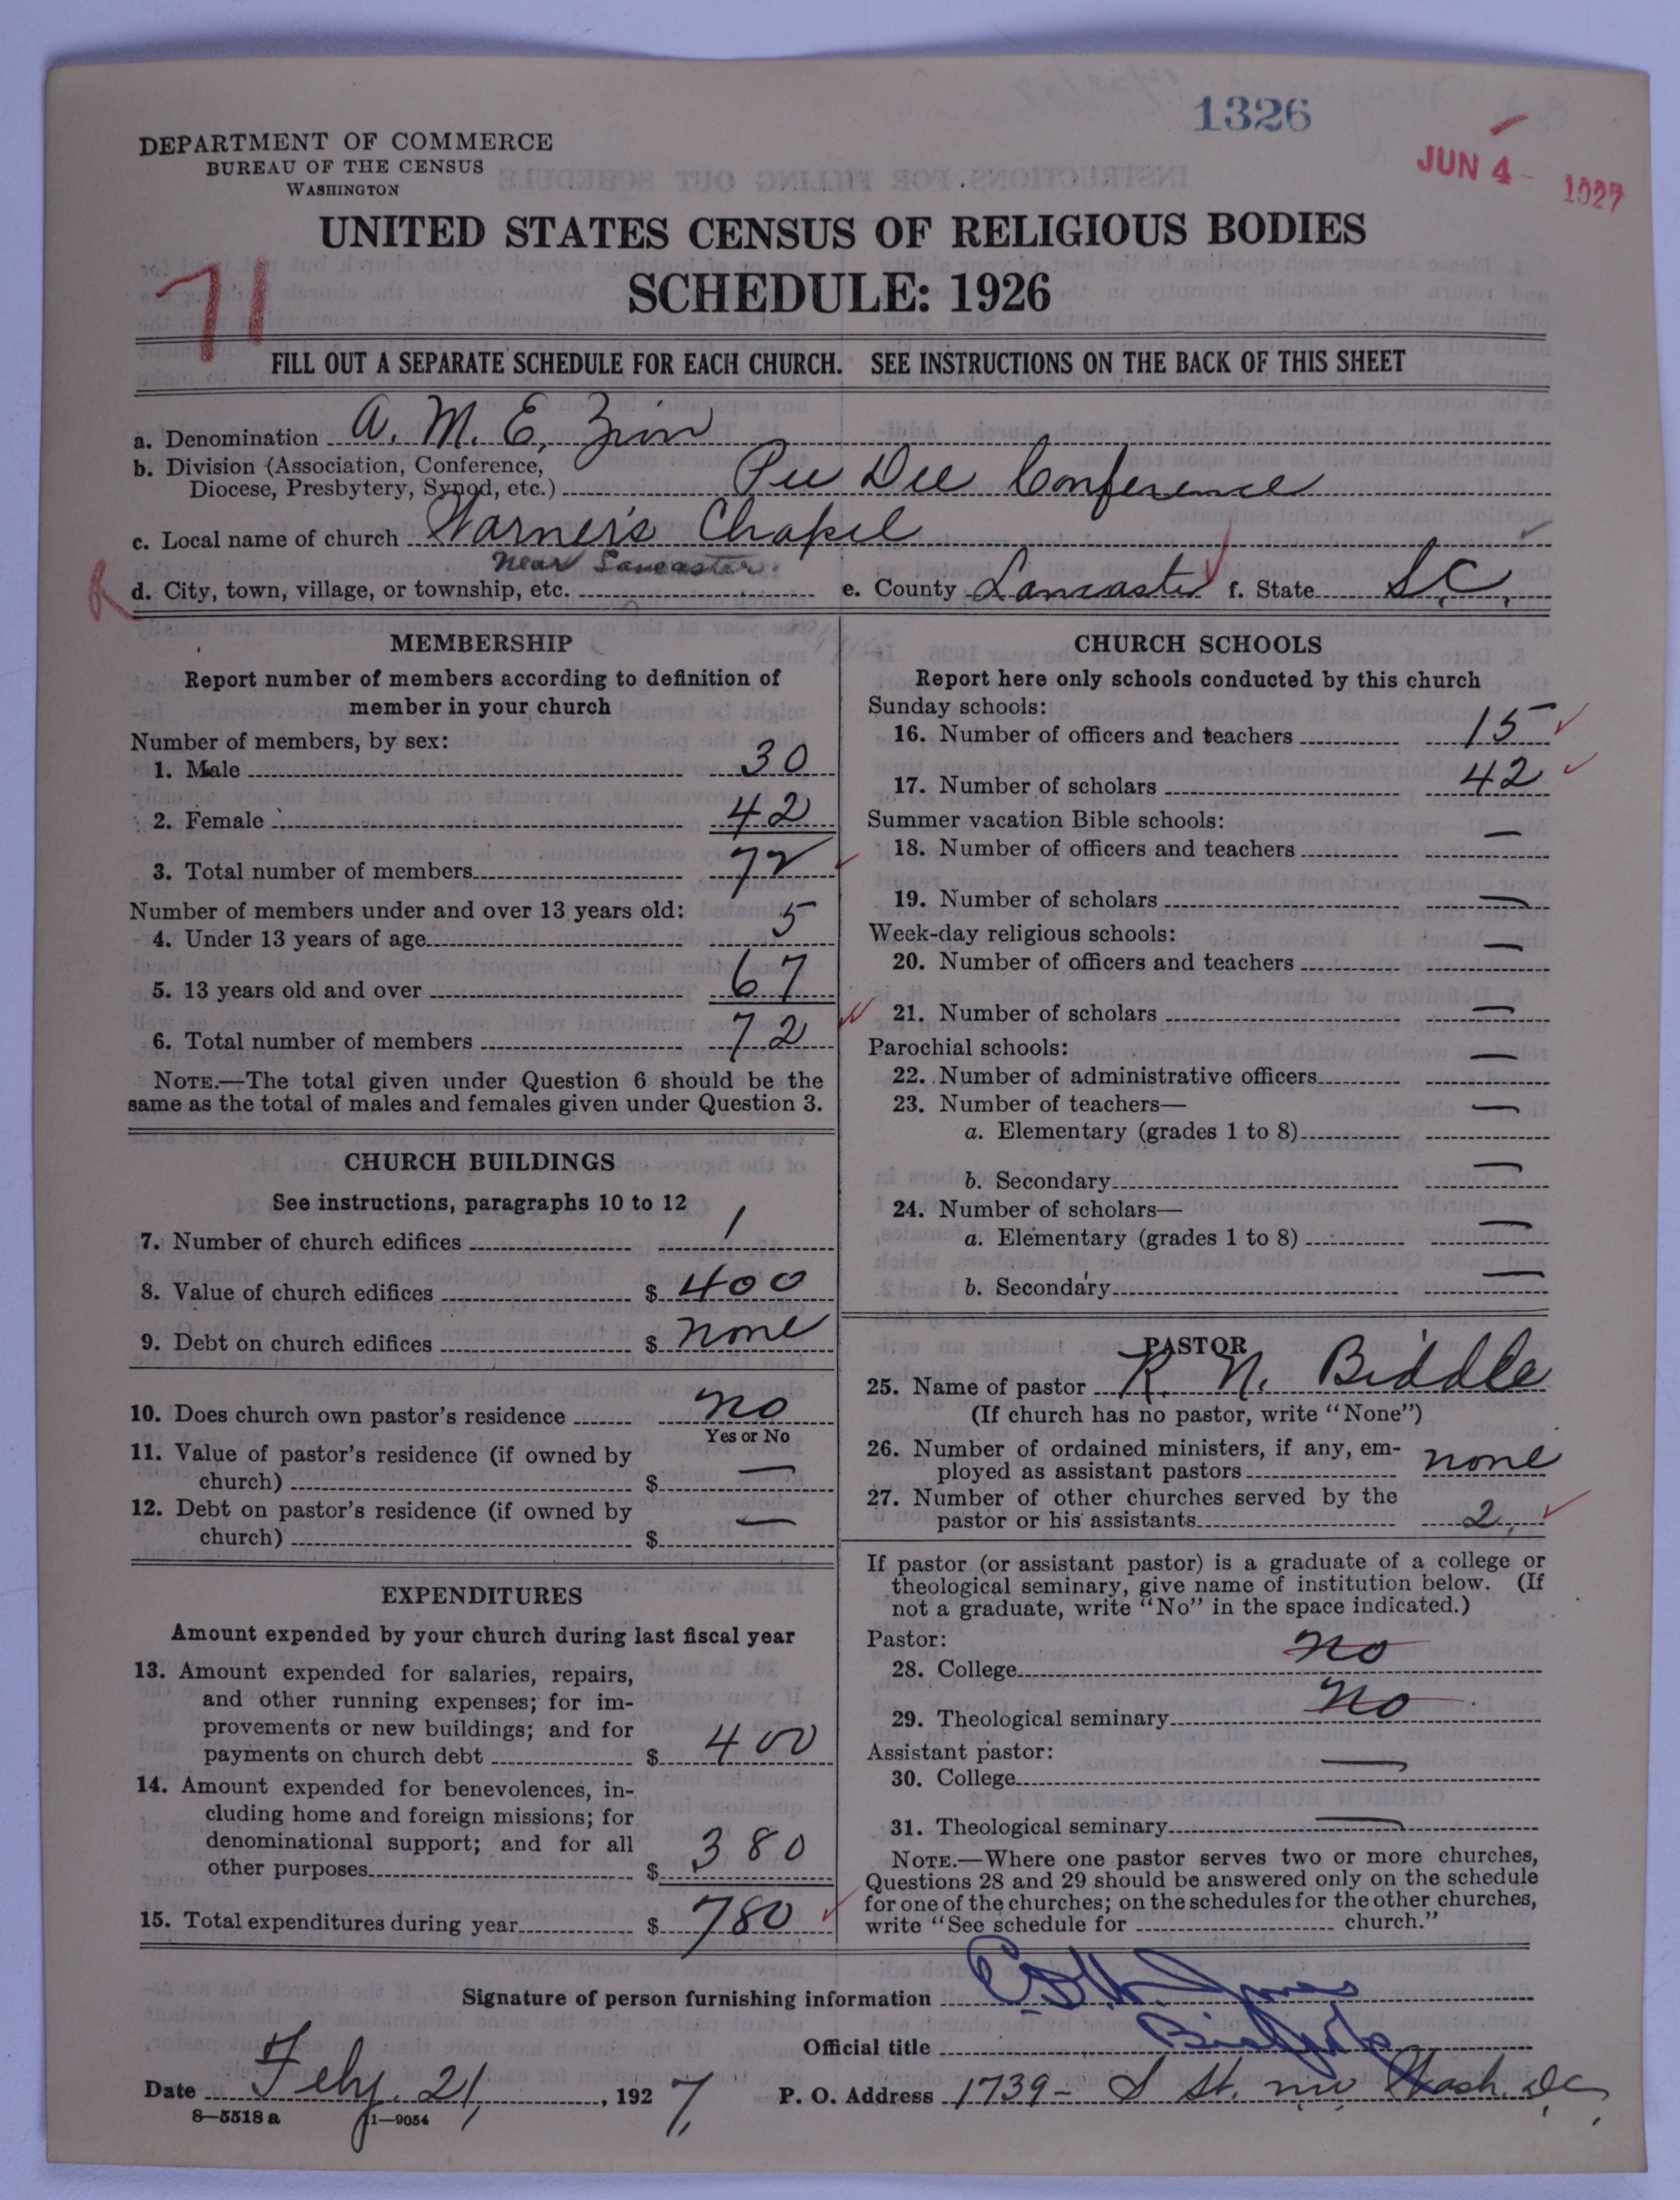 1326
JUN 4 - 1927
DEPARTMENT OF COMMERCE
BUREAU OF THE CENSUS
WASHINGTON
UNITED STATES CENSUS OF RELIGIOUS BODIES
SCHEDULE: 1926
71
FILL OUT A SEPARATE SCHEDULE FOR EACH CHURCH. SEE INSTRUCTIONS ON THE BACK OF THIS SHEET
a. Denomination A. M. E. Zion
b. Division (Association, Conference,
Diocese, Presbytery, Synod, etc.) Pee Dee Conference
c. Local name of church Warner's Chapel
near Lancaster
d. City, town, village, or township, etc. e. County Lancaster f. State S.C.
MEMBERSHIP
Report number of members according to definition of
member in your church
Number of members, by sex:
1. Male 30
2. Female 42
3. Total number of members 72
Number of members under and over 13 years old:
4. Under 13 years of age 5
5. 13 years old and over 67
6. Total number of members 72
NOTE.—The total given under Question 6 should be the
same as the total of males and females given under Question 3.
CHURCH BUILDINGS
See instructions, paragraphs 10 to 12
7. Number of church edifices 1
8. Value of church edifices $ 400
9. Debt on church edifices $ none
10. Does church own pastor's residence no
Yes or No
11. Value of pastor's residence (if owned by
church) $ —
12. Debt on pastor's residence (if owned by
church) $ —
EXPENDITURES
Amount expended by your church during last fiscal year
13. Amount expended for salaries, repairs,
and other running expenses; for im-
provements or new buildings; and for
payments on church debt $ 400
14. Amount expended for benevolences, in-
cluding home and foreign missions; for
denominational support; and for all
other purposes $ 380
15. Total expenditures during year $ 780
CHURCH SCHOOLS
Report here only schools conducted by this church
Sunday schools:
16. Number of officers and teachers 15
17. Number of scholars 42
Summer vacation Bible schools:
18. Number of officers and teachers —
19. Number of scholars —
Week-day religious schools:
20. Number of officers and teachers —
21. Number of scholars —
Parochial schools:
22. Number of administrative officers —
23. Number of teachers—
a. Elementary (grades 1 to 8) —
b. Secondary —
24. Number of scholars—
a. Elementary (grades 1 to 8) —
b. Secondary —
PASTOR
25. Name of pastor R. N. Biddle
(If church has no pastor, write "None")
26. Number of ordained ministers, if any, em-
ployed as assistant pastors none
27. Number of other churches served by the
pastor or his assistants 2
If pastor (or assistant pastor) is a graduate of a college or
theological seminary, give name of institution below. (If
not a graduate, write "No" in the space indicated.)
Pastor:
28. College no
29. Theological seminary no
Assistant pastor:
30. College —
31. Theological seminary —
NOTE.—Where one pastor serves two or more churches,
Questions 28 and 29 should be answered only on the schedule
for one of the churches; on the schedules for the other churches,
write "See schedule for church."
Signature of person furnishing information Jones
Official title
Date Feby. 21, 1927, P. O. Address 1739 - S St. nw Wash. D.C.
8—5518 a 1—9054